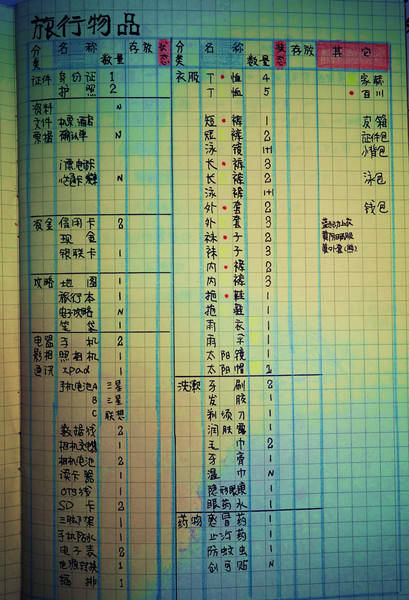 旅行物品
分类 名称 数量 存放 状态 分类 名称 数量 状态 存放 其它
证件 身份证 1
护照 2
资料 N
文件 机票酒店
票据 确认单 N
门票电卡
N
资金 信用卡 2
现金
银联卡 1
攻略 地图 1
旅行本 1
电子攻略 N
笔袋 1
电器 手机 2
影相 照相机 1
通讯 xpad 1
手机电池A 三星
B 三星
C 联想
数据线 2
相机电池 2
读卡器 1
OTG线 1
SD卡 2
三脚架 1
手机防水 1
电子表 2
电源转换 1
插排 1
衣服 T•恤 4
T恤 5
短•裤 1
短裤 2
泳镜 1+1
长•裤 3
长裤 2
泳裤 1+1
外•套 2
外套 3
袜•子 2
袜子 3
内•裤 2
内裤 3
拖•鞋 1
拖鞋 1
雨衣 1
雨伞 1
太阳镜 1
太阳帽 1
洗漱 牙刷 2
牙膏 1
剃须刀 1
润肤露 1
毛巾 2
牙膏 1
湿巾 N
隐形眼镜
眼药水 1
药物 感冒药 1
止泻药 1
防蚊虫 1
创可贴 N
• 百川
皮箱
证件包
小背包
泳包
钱包